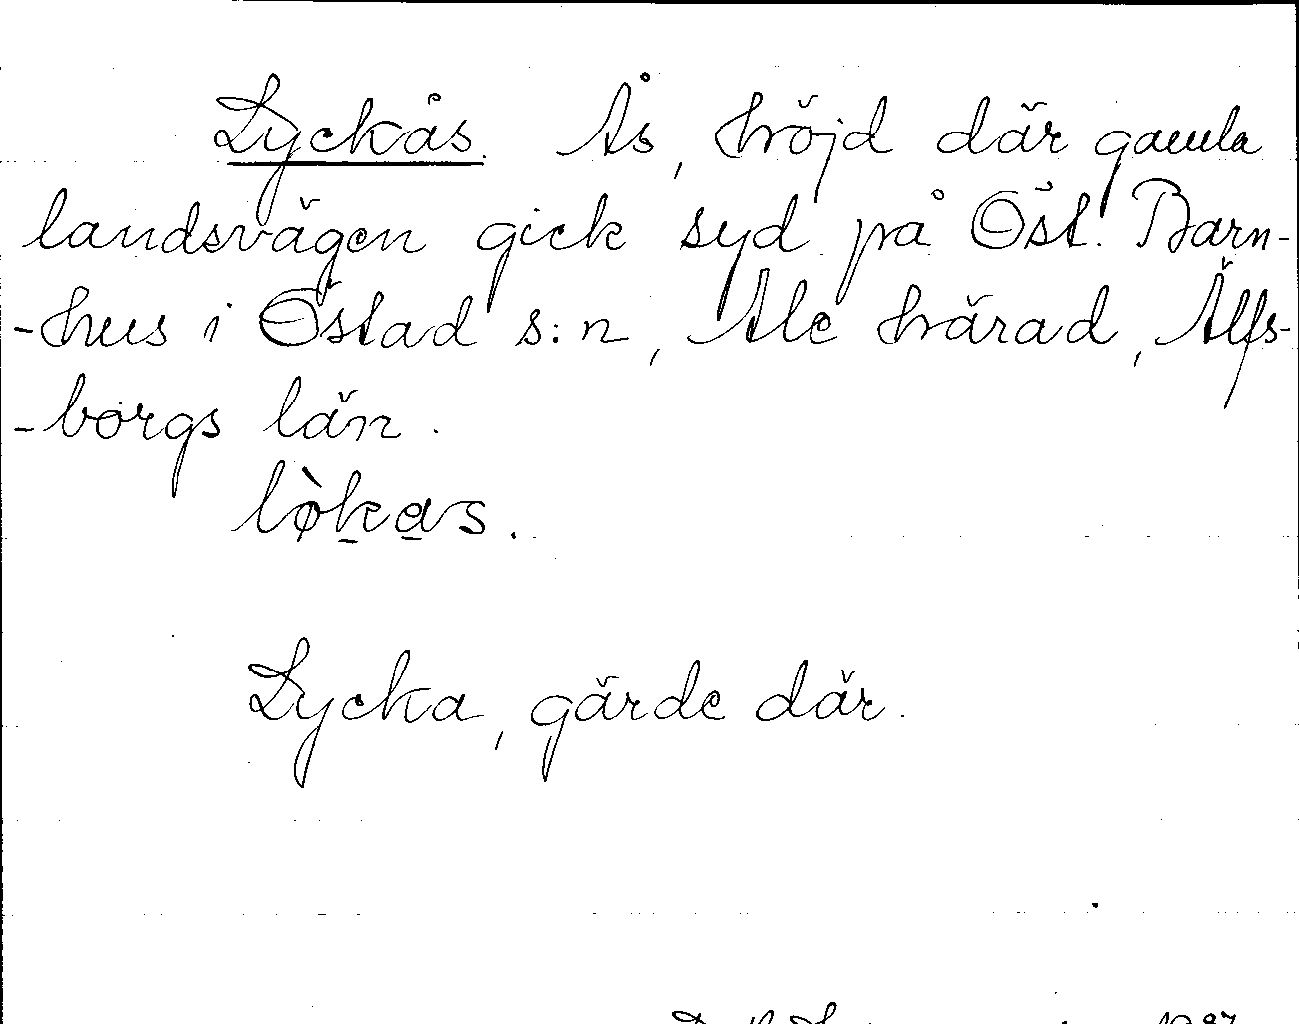 Lyckås. Ås, höjd där gamla
landsvägen gick syd på Öst. Barn-
-hus i Östad s:n, Ale härad, Älfs-
-borgs län.
lø̀kas.
Lycka, gärde där.